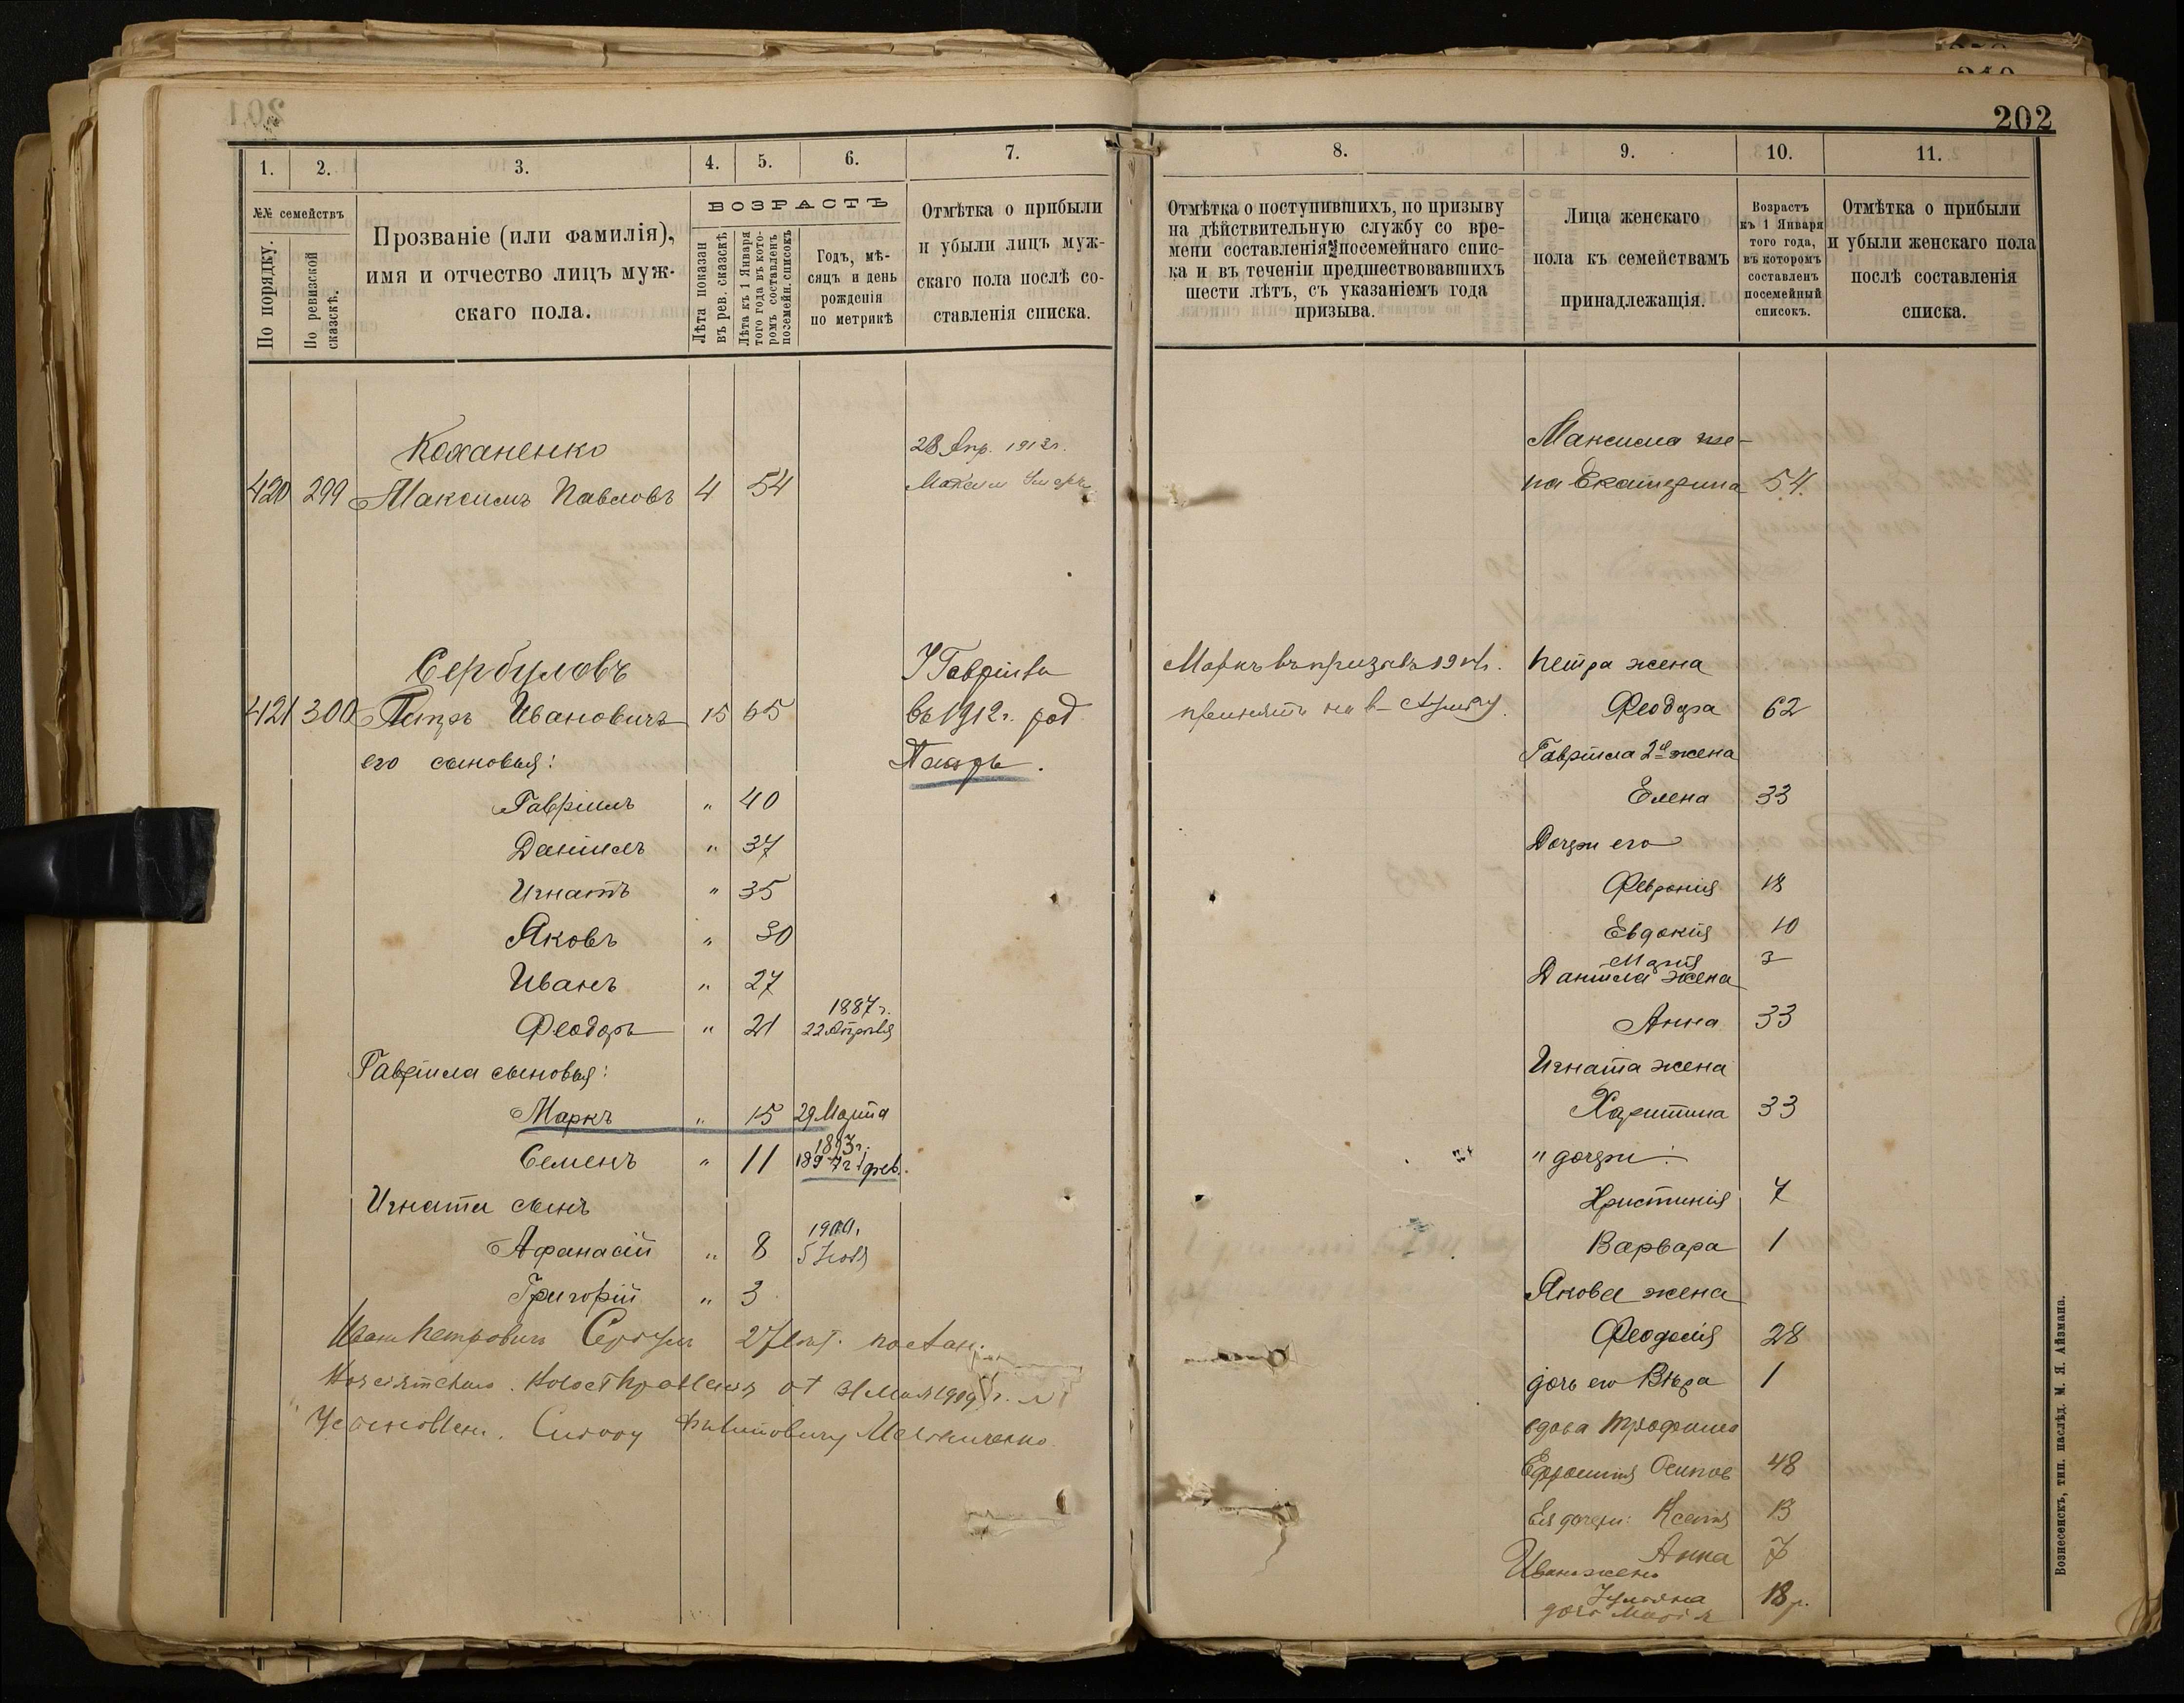 202
1.
2.
3.
4.
5.
6.
7.
№№ семействъ
По порядку.
По ревизской сказскѣ.
Прозваніе (или фамилія),
имя и отчество лицъ муж-
скаго пола.
ВОЗРАСТЪ
Лѣта показан
въ рев. сказскѣ
Лѣта къ 1 Января
того года въ кото-
ромъ составленъ
посемейн. списокъ
Годъ, мѣ-
сяцъ и день
рожденія
по метрикѣ
Отмѣтка о прибыли
и убыли лицъ муж-
скаго пола послѣ со-
ставленія списка.
Коханенко
28 Апр. 1913г.
420 299 Максимъ Павловъ 4 54
Максим Умеръ
Сербуловъ
У Гавріила
421 300 Петръ Ивановичъ 15 65
въ 1912г. род
его сыновья:
Гавріилъ " 40
Даніилъ " 37
Игнатъ " 35
Яковъ " 30
Иванъ " 27
1887г.
Феодоръ " 21 22 Апрѣля
Гавріила сыновья:
Маркъ " 15 29 Марта
1893г.
Семенъ " 11 1897г 1 фев.
Игната сынъ
1900г.
Афанасій " 8 5
Григорій " 3
Иван Петрович 27 лѣт. постан.
от 31 Мая 1909 г. №
Усыновлен.
8.
9.
10.
11.
Отмѣтка о поступившихъ, по призыву
на дѣйствительную службу со вре-
мени составленія посемейнаго спис-
ка и въ теченіи предшествовавшихъ
шести лѣтъ, съ указаніемъ года
призыва.
Лица женскаго
пола къ семействамъ
принадлежащія.
Возрастъ
къ 1 Января
того года,
въ которомъ
составленъ
посемейный
списокъ.
Отмѣтка о прибыли
и убыли женскаго пола
послѣ составленія
списка.
Максима же-
на Екатерина 54.
Маркъ въ призывъ 1914г.
принятъ на в- службу.
Петра жена
Феодора 62
Гавріила 2я жена
Елена 33
Дочери его
Февронія 18
Евдокія 10
Марія 3
Даніила жена
Анна 33
Игната жена
Харитина 33
" дочери:
Христинія 7
Варвара 1
Якова жена
Феодосія 28
дочь его Вѣра 1
вдова Трофима
Ефросинія Осипов 48
Ея дочери: Ксенія 13
Анна 7
Ивана жена
Ульяна 18
дочь Марія
Вознесенскъ, тип. наслѣд. М. Я. Айзмана.